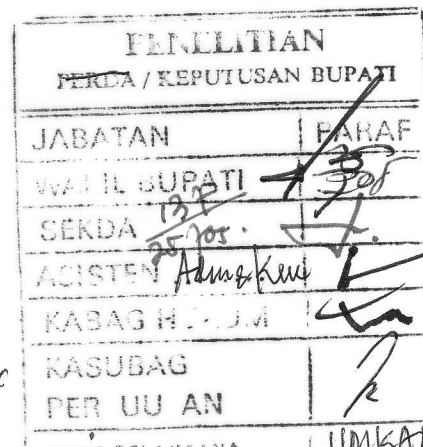 PENELITIAN
PERDA / KEPUTUSAN BUPATI
JABATAN PARAF
WAKIL BUPATI
SEKDA
ASISTEN Adm & Keu
KABAG HUKUM
KASUBAG
PER UU AN